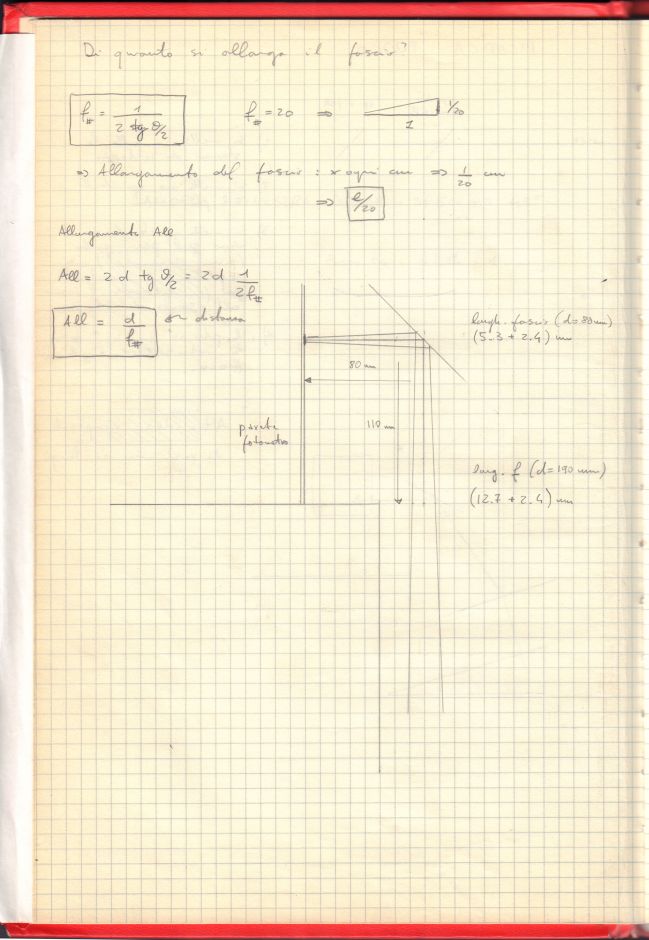 Di quanto si allarga il fascio?
f# = 1 / 2 tg θ/2
f# = 20 ⇒
1/20
1
⇒ Allargamento del fascio : x ogni cm ⇒ 1/20 cm
⇒ l/20
Allargamento All
All = 2 d tg θ/2 = 2d 1/2f#
All = d/f# ← distanza
largh. fascio (d=80mm)
(5.3 + 2.4) mm
80 mm
110 mm
parete
larg. f (d=190 mm)
(12.7 + 2.4) mm